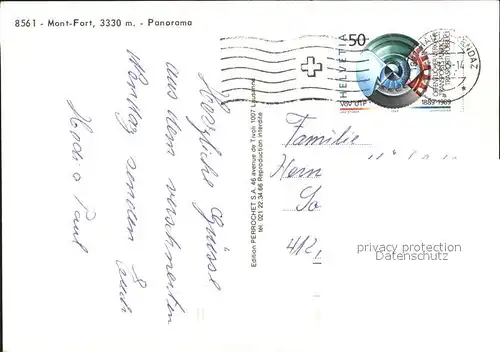 8561 - Mont-Fort, 3330 m. - Panorama
Herzliche Grüsse
aus dem verschneiten
senden Euch
Hedi & Paul
Edition PERROCHET S.A. 46 avenue de Tivoli 1007 Lausanne
tél. 021 22 34 66 Reproduction interdite
HELVETIA
50
VöV UTP
1889-1989
Familie
Herrn
412
privacy protection
Datenschutz